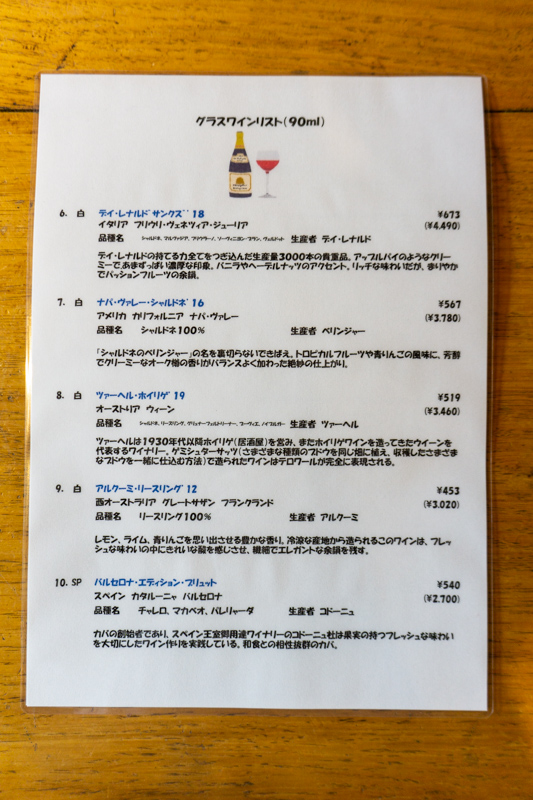 グラスワインリスト(90ml)
6. 白 デイ・レナルド゛サンクズ゛18 ¥673
イタリア フリウリ・ヴェネツィア・ジューリア (¥4,490)
品種名 シャルドネ、マルヴァジア、フリウラーノ、ソーヴィニヨン・ブラン、ヴェルドット 生産者 デイ・レナルド
デイ・レナルドの持てる力全てをつぎ込んだ生産量3000本の貴重品。アップルパイのようなクリー
ミーで、あまずっぱい濃厚な印象。バニラやヘーデルナッツのアクセント。リッチな味わいだが、まりやか
でパッションフルーツの余韻。
7. 白 ナパ・ヴァレー・シャルドネ゛16 ¥567
アメリカ カリフォルニア ナパ・ヴァレー (¥3,780)
品種名 シャルドネ100% 生産者 ベリンジャー
「シャルドネのベリンジャー」の名を裏切らないできばえ。トロピカルフルーツや青りんごの風味に、芳醇
でクリーミーなオーク樽の香りがバランスよく加わった絶妙の仕上がり。
8. 白 ツァーヘル・ホイリゲ゛19 ¥519
オーストリア ウィーン (¥3,460)
品種名 シャルドネ、リースリング、グリュナーフェルトリーナー、 生産者 ツァーヘル
ツァーヘルは1930年代以降ホイリゲ(居酒屋)を営み、またホイリゲワインを造ってきたウイーンを
代表するワイナリー。ゲミシュターサッツ(さまざまな種類のブドウを同じ畑に植え、収穫したさまざま
なブドウを一緒に仕込む方法)で造られたワインはテロワールが完全に表現される。
9. 白 アルクーミ・リースリング゛12 ¥453
西オーストラリア グレートサザン フランクランド (¥3,020)
品種名 リースリング100% 生産者 アルクーミ
レモン、ライム、青りんごを思い出させる豊かな香り。冷涼な産地から造られるこのワインは、フレッ
シュな味わいの中にきれいな酸を感じさせ、繊細でエレガントな余韻を残す。
10. SP バルセロナ・エディション・ブリュット ¥540
スペイン カタルーニャ バルセロナ (¥2,700)
品種名 チャレロ、マカベオ、パレリャーダ 生産者 コドーニュ
カバの創始者であり、スペイン王室御用達ワイナリーのコドーニュ社は果実の持つフレッシュな味わい
を大切にしたワイン作りを実践している。和食との相性抜群のカバ。